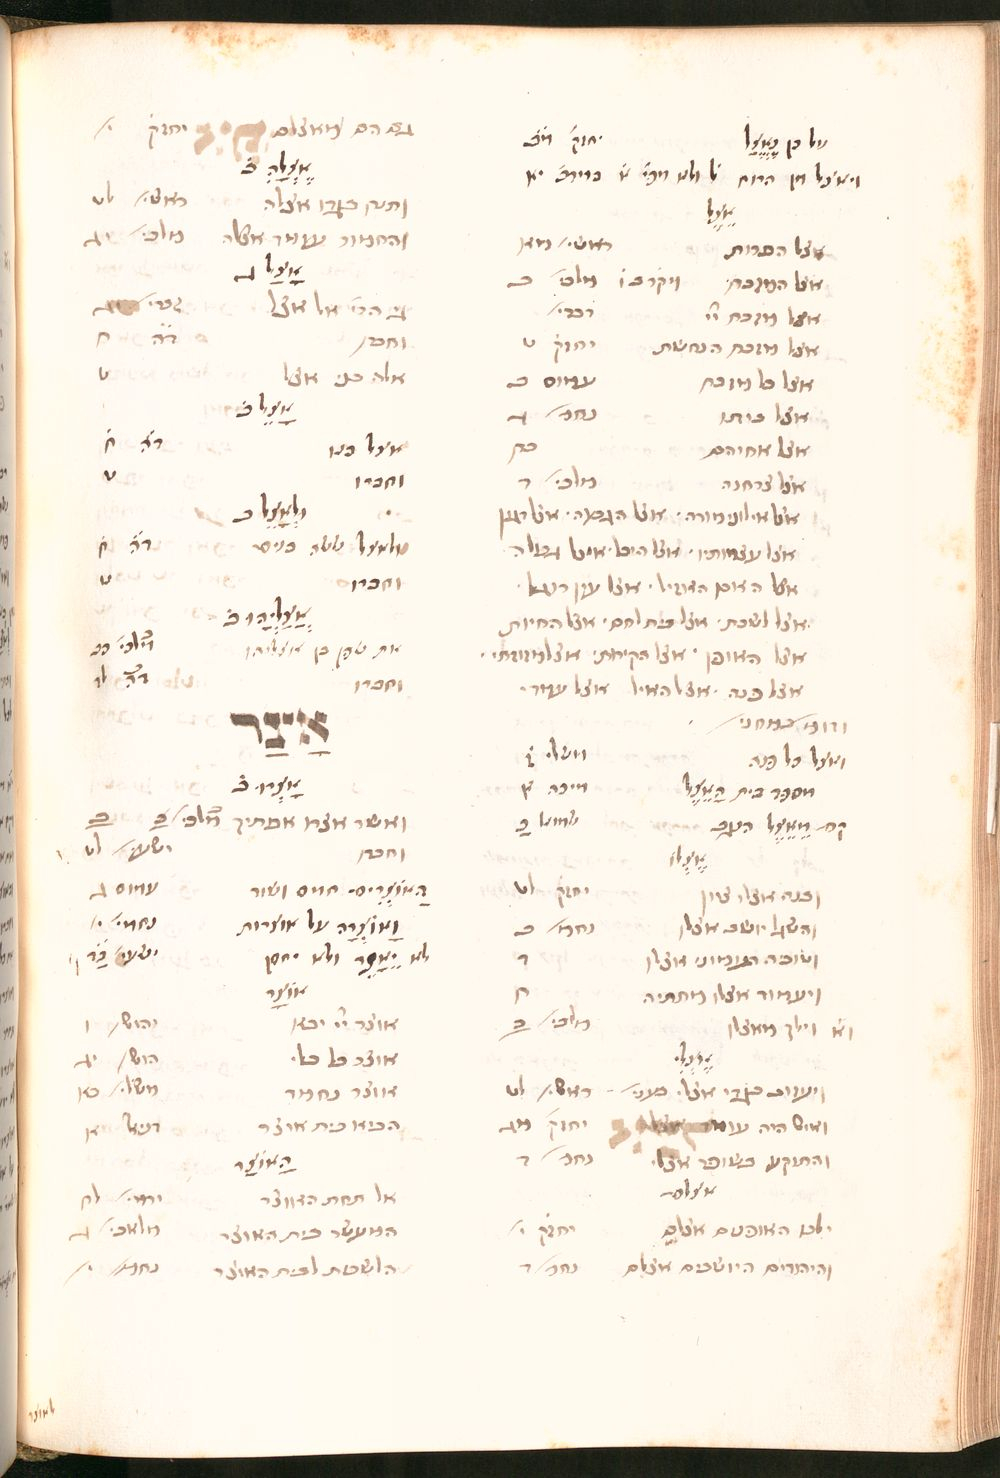 על כן נֶאֱצַל יחזק' מב
ויאצל מן הרוח במדבר יא
אֵצֶל
אצל הפרות ראשי' מא
אצל המזבח ויקרב' ו מלכי' ב
אצל מזבח יי דברי'
אצל מזבח הנחשת יחזק' ט
אצל כל מזבח עמוס ב
אצל ביתו נחמ' ג
אצל אחיהם
אצל צרתנה מלכי' ד
אצל אילוני מורה · אצל הגבעה · אצל דגון
אצל עצמותיו · אצל היכל · אצל גבולה
אצל האבן האזל · אצל עין רוגל ·
אצל לשכת · אצל בית לחם · אצל החיות
אצל האופן · אצל הקירות · אצל מזוזתי ·
אצל פנה · אצל האיל אצל עמוד ·
ואצל כל פנה משלי ז
מספד בית הָאֵצֶל מיכה א
קם מֵאֵצֶל הנגב שמואל כ
אֶצְלוֹ
ובנה אצלו ציון יחזק' לט
והשגל יושבת אצלו נחמ' ב
וטוביה העמוני אצלו ד
ויעמוד אצלו מתתיה ח
וילך מאצלו מלכי' כ
אֶצְלִי
ויעזוב בגדו אצלי ראשי' לט
ואיש היה עומד אצלי יחזק' מג
והתוקע בשופר אצלי נחמ' ד
אצלם
ילכו האופנים אצלם יחזק' י
והיהודים היושבים אצלם נחמ' ד
גם הם מאצלם יחזק' י
אֶצְלָהּ ב
ותנח בגדו אצלה ראשי' לט
והחמור עומד אצלה מלכי' יג
אָצַל ג
גי הרי' אל אצל זכרי' יד
וחברו דה ח
אלה בני אצל ט
אָצֵל ב
אצל בנו דה ח
וחברו ט
וּלְאָצֵל ב
ולאצל ששה בנים דה ח
וחברו ט
אֲצַלְיָהוּ ב
את שפן בן אצליהו מלכי' כב
וחברו דה לד
אָצַר
אָצְרוּ ב
ואשר אצרו אבתיך מלכי' ב כ
וחברו ישעי' לט
הָאוֹצְרִים חמס ושוד עמוס ג
וָאוֹצְרָה על אוצרות נחמי' יג
לא יֵאָצֵר ולא יחסן ישעי' כג
אוֹצָר
אוצר יי יבא יהוש' ו
אוצר כל כלי הושע יג
אוצר נחמד משלי כא
הביא בית אוצר דניאל א
הָאוֹצָר
אל תחת האוצר ירמי' לח
המעשר בית האוצר מלאכי' ג
הלשכות לבית האוצר נחמ' י
לאוצר